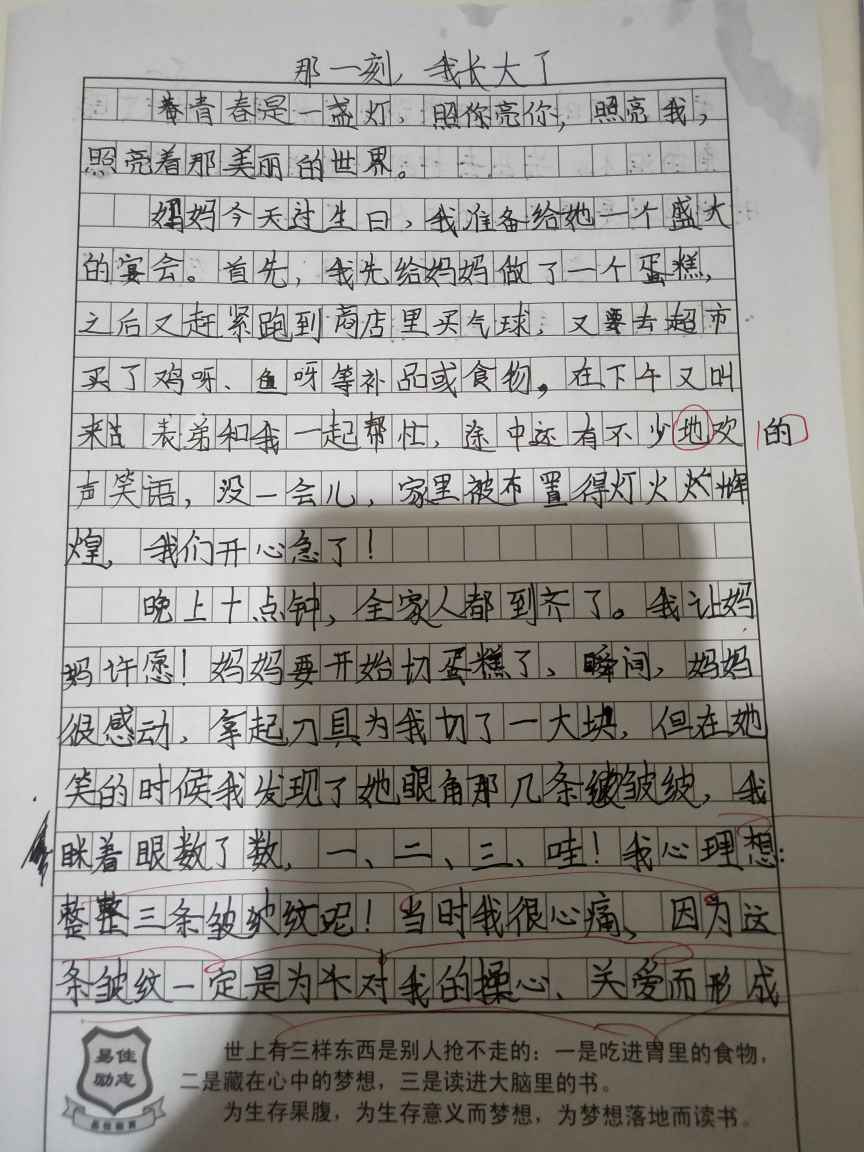 那一刻，我长大了
青春是一盏灯，照你亮你，照亮我，
照亮着那美丽的世界。
妈妈今天过生日，我准备给她一个盛大
的宴会。首先，我先给妈妈做了一个蛋糕，
之后又赶紧跑到商店里买气球，又要去超市
买了鸡呀、鱼呀等补品或食物，在下午又叫
来 表弟和我一起帮忙，途中还有不少地欢 的
声笑语，没一会儿，家里被布置得灯火灯辉
煌，我们开心急了！
晚上十点钟，全家人都到齐了。我让妈
妈许愿！妈妈要开始切蛋糕了、瞬间，妈妈
很感动，拿起刀具为我切了一大块，但在她
笑的时候我发现了她眼角那几条皱皱纹，我
眯着眼数了数，一、二、三、哇！我心理想：
整整三条皱纹纹呢！当时我很心痛、因为这
条皱纹一定是为 对我的操心、关爱而形成
易佳
励志
易佳教育
世上有三样东西是别人抢不走的：一是吃进胃里的食物，
二是藏在心中的梦想，三是读进大脑里的书。
为生存果腹，为生存意义而梦想，为梦想落地而读书。